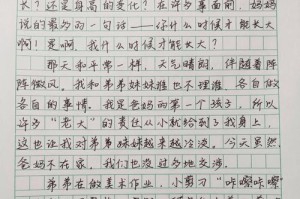 长？还是身高的变化？在许多事面前，妈妈
说的最多的一句话——你什么时候才能长大
啊！是啊，我什么时候才能长大？
那天和平常一样，天气晴朗，伴随着阵
阵微风。我和弟弟妹妹谁也不理谁，各自做
各自的事情。我是爸妈的第一个孩子，所以
许多“老大”的责任从小就给到了我身上，
这也让我对弟弟妹妹越来越冷淡。今天虽然
爸妈不在家，我们也没过多地交涉。
弟弟在做美术作业，小剪刀“咔嚓咔嚓”